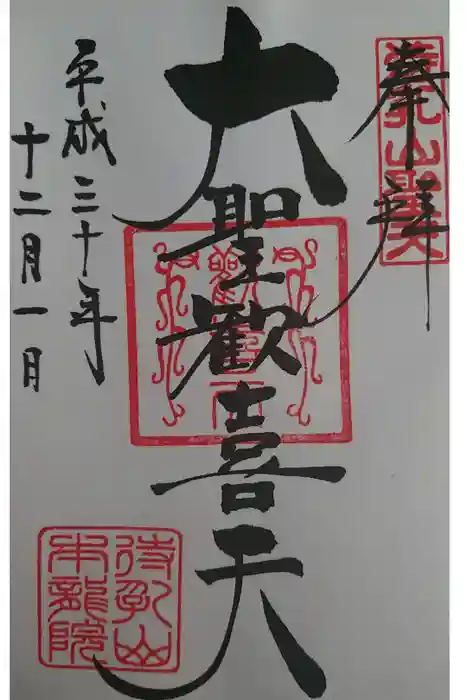 奉拝
待乳山聖天
大聖歓喜天
平成三十年
十二月一日
待乳山
本龍院